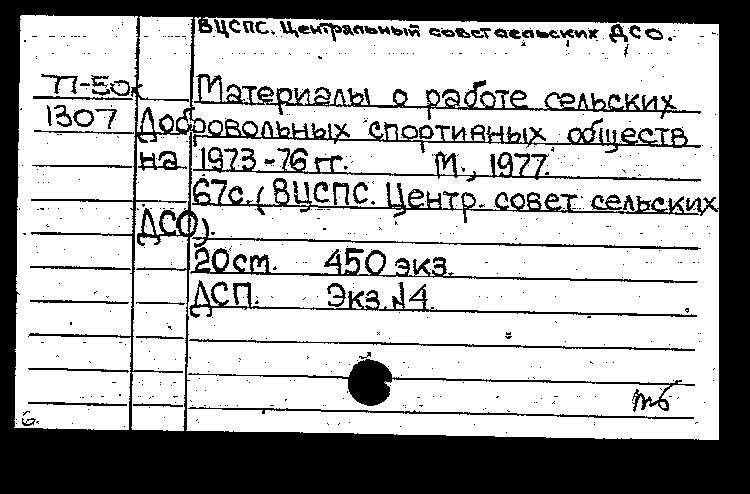 ВЦСПС. Центральный совет сельских ДСО.
77-50к Материалы о работе сельских
1307 Добровольных спортивных обществ
на 1973-76 гг. М., 1977.
67с. (ВЦСПС. Центр. совет сельских
ДСО).
20см. 450 экз.
ДСП. Экз. №4
6.